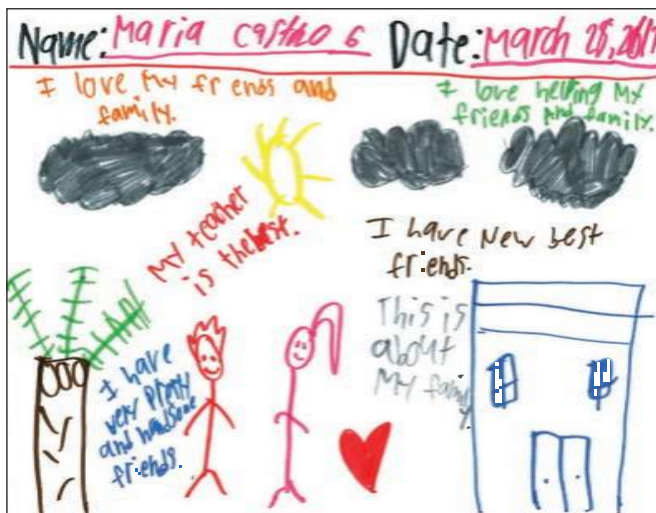 Name: Maria castro G Date: March 28, 2017
I love My friends and
family.
I love helping My
friends and family.
My teacher
is the best.
I have New best
friends.
This is
about
My family.
I have
very pretty
and handsome
friends.